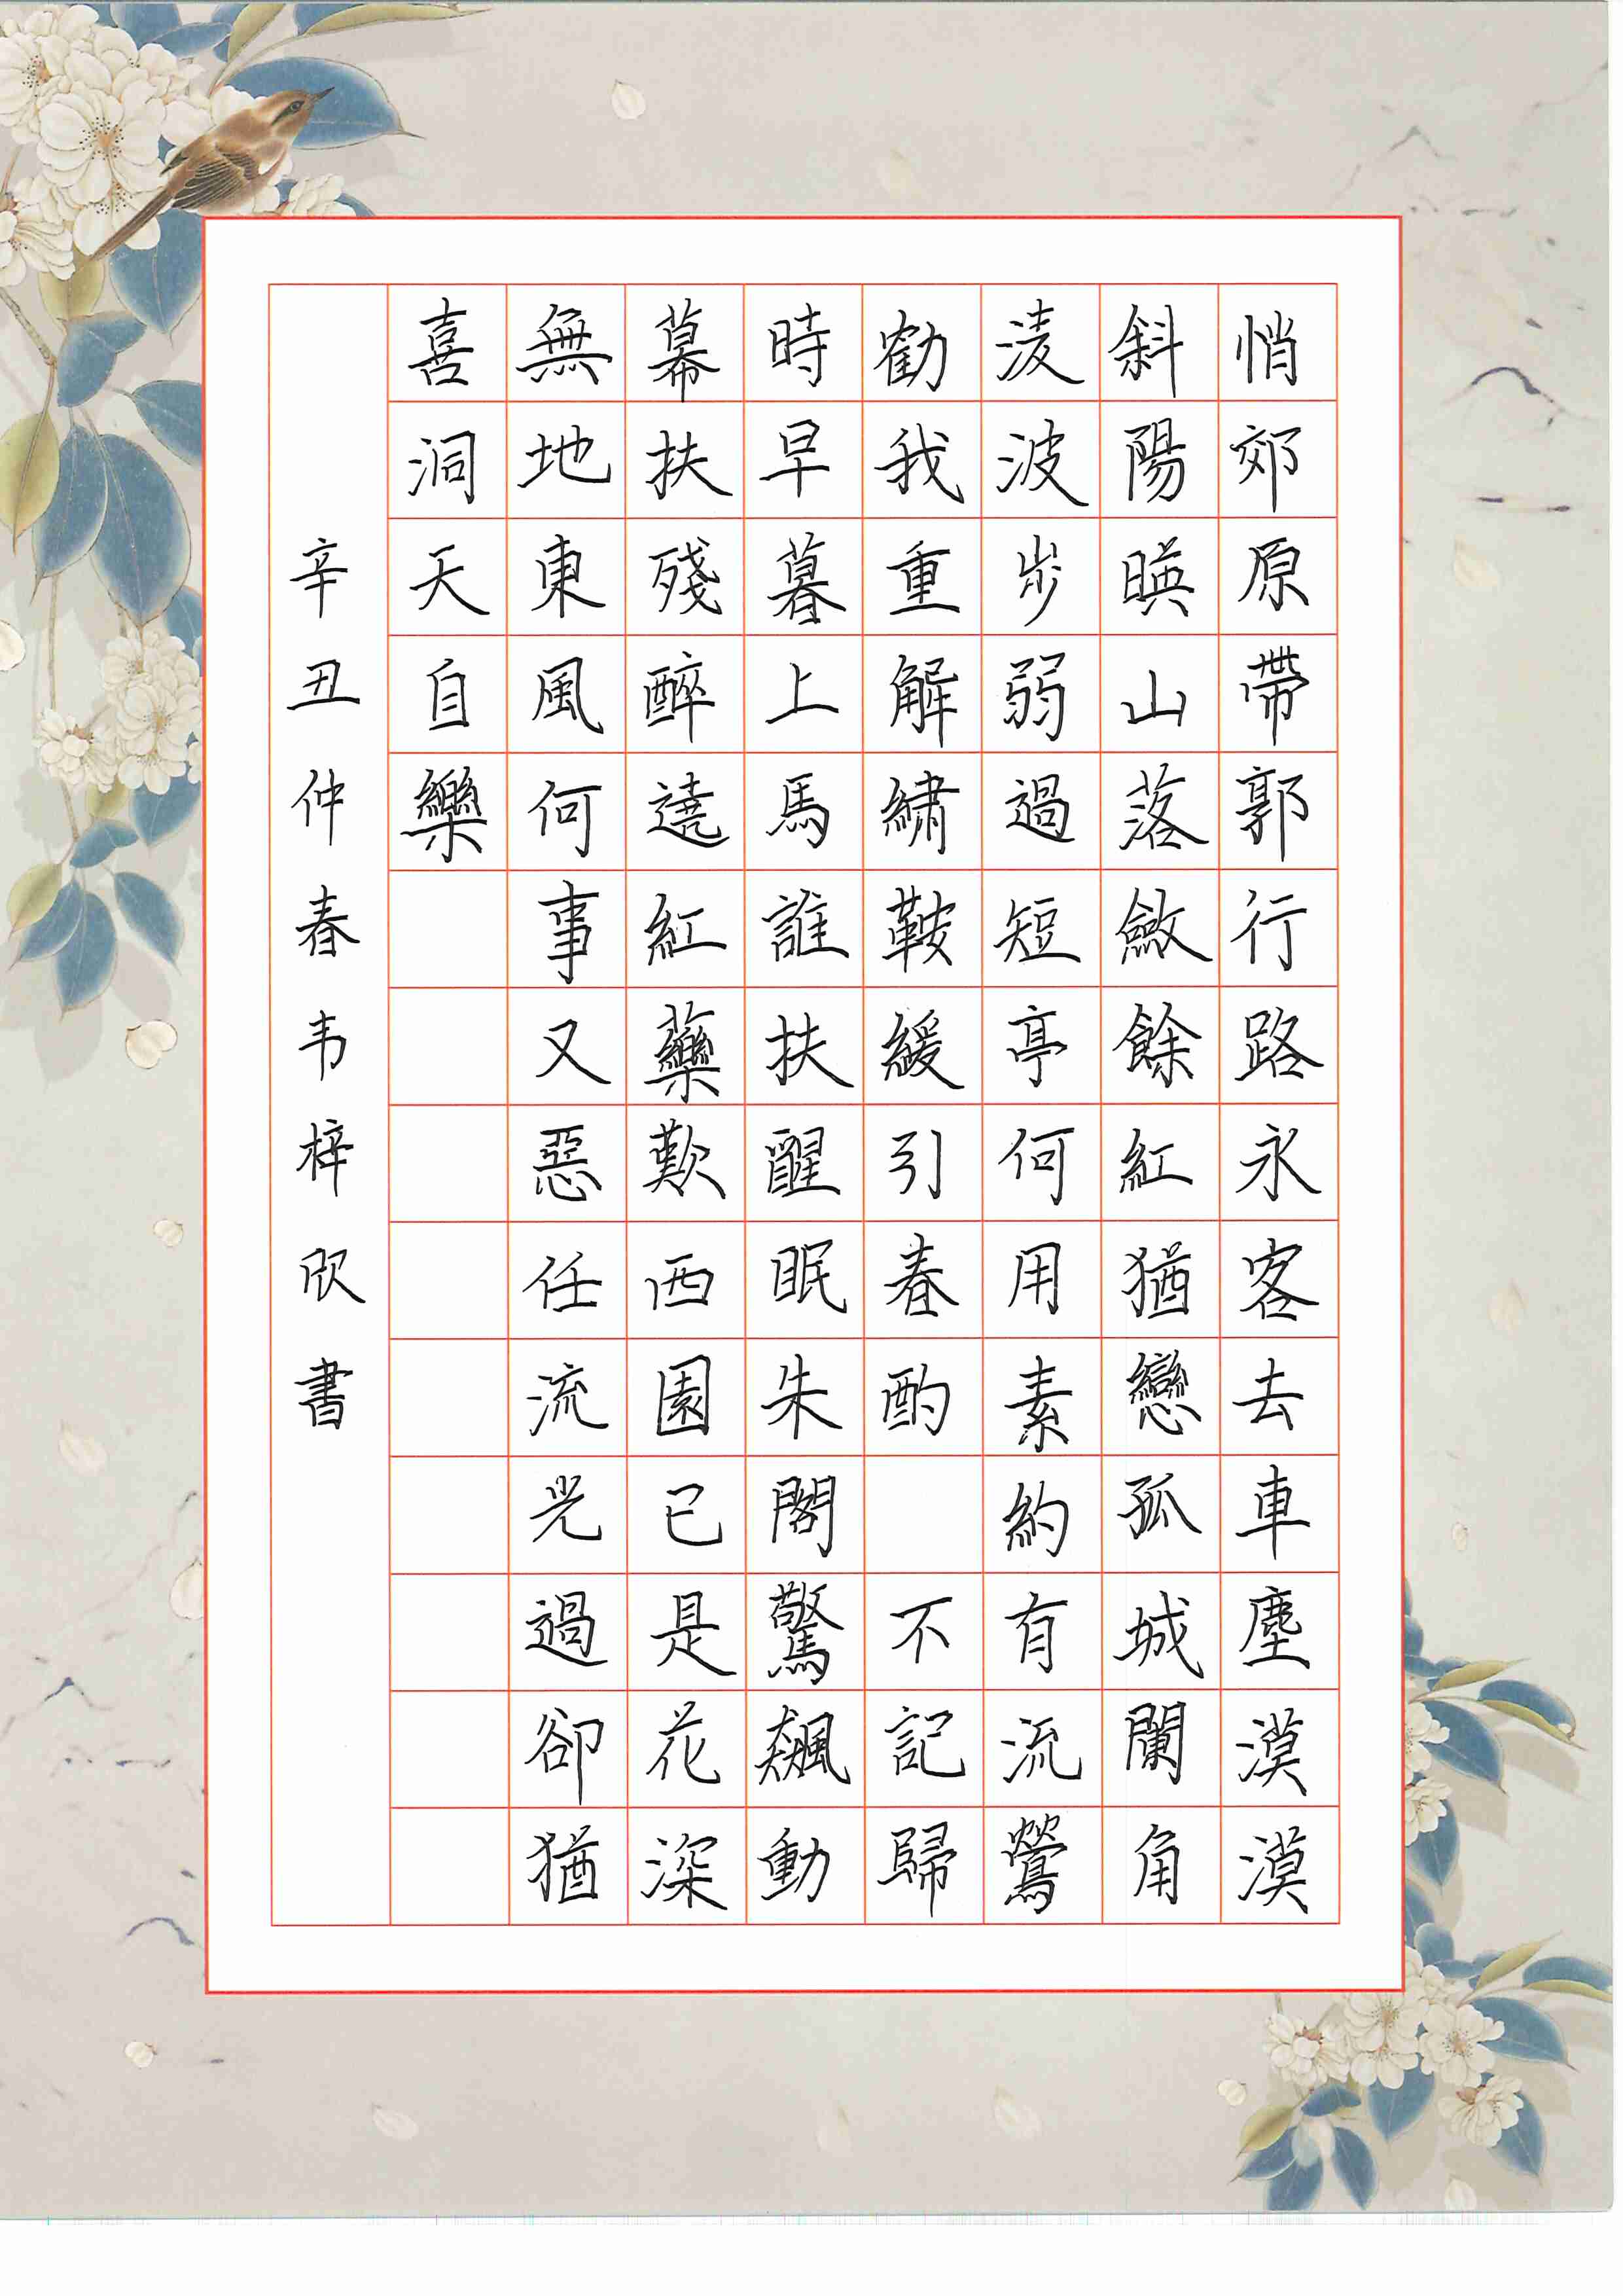 悄郊原帶郭行路永客去車塵漠漠
斜陽暎山落斂餘紅猶戀孤城闌角
淩波步弱過短亭何用素約有流鶯
勸我重解繡鞍緩引春酌 不記歸
時早暮上馬誰扶醒眠朱閣驚飆動
幕扶殘醉遶紅藥歎西園已是花深
無地東風何事又惡任流光過卻猶
喜洞天自樂
辛丑仲春韦梓欣書